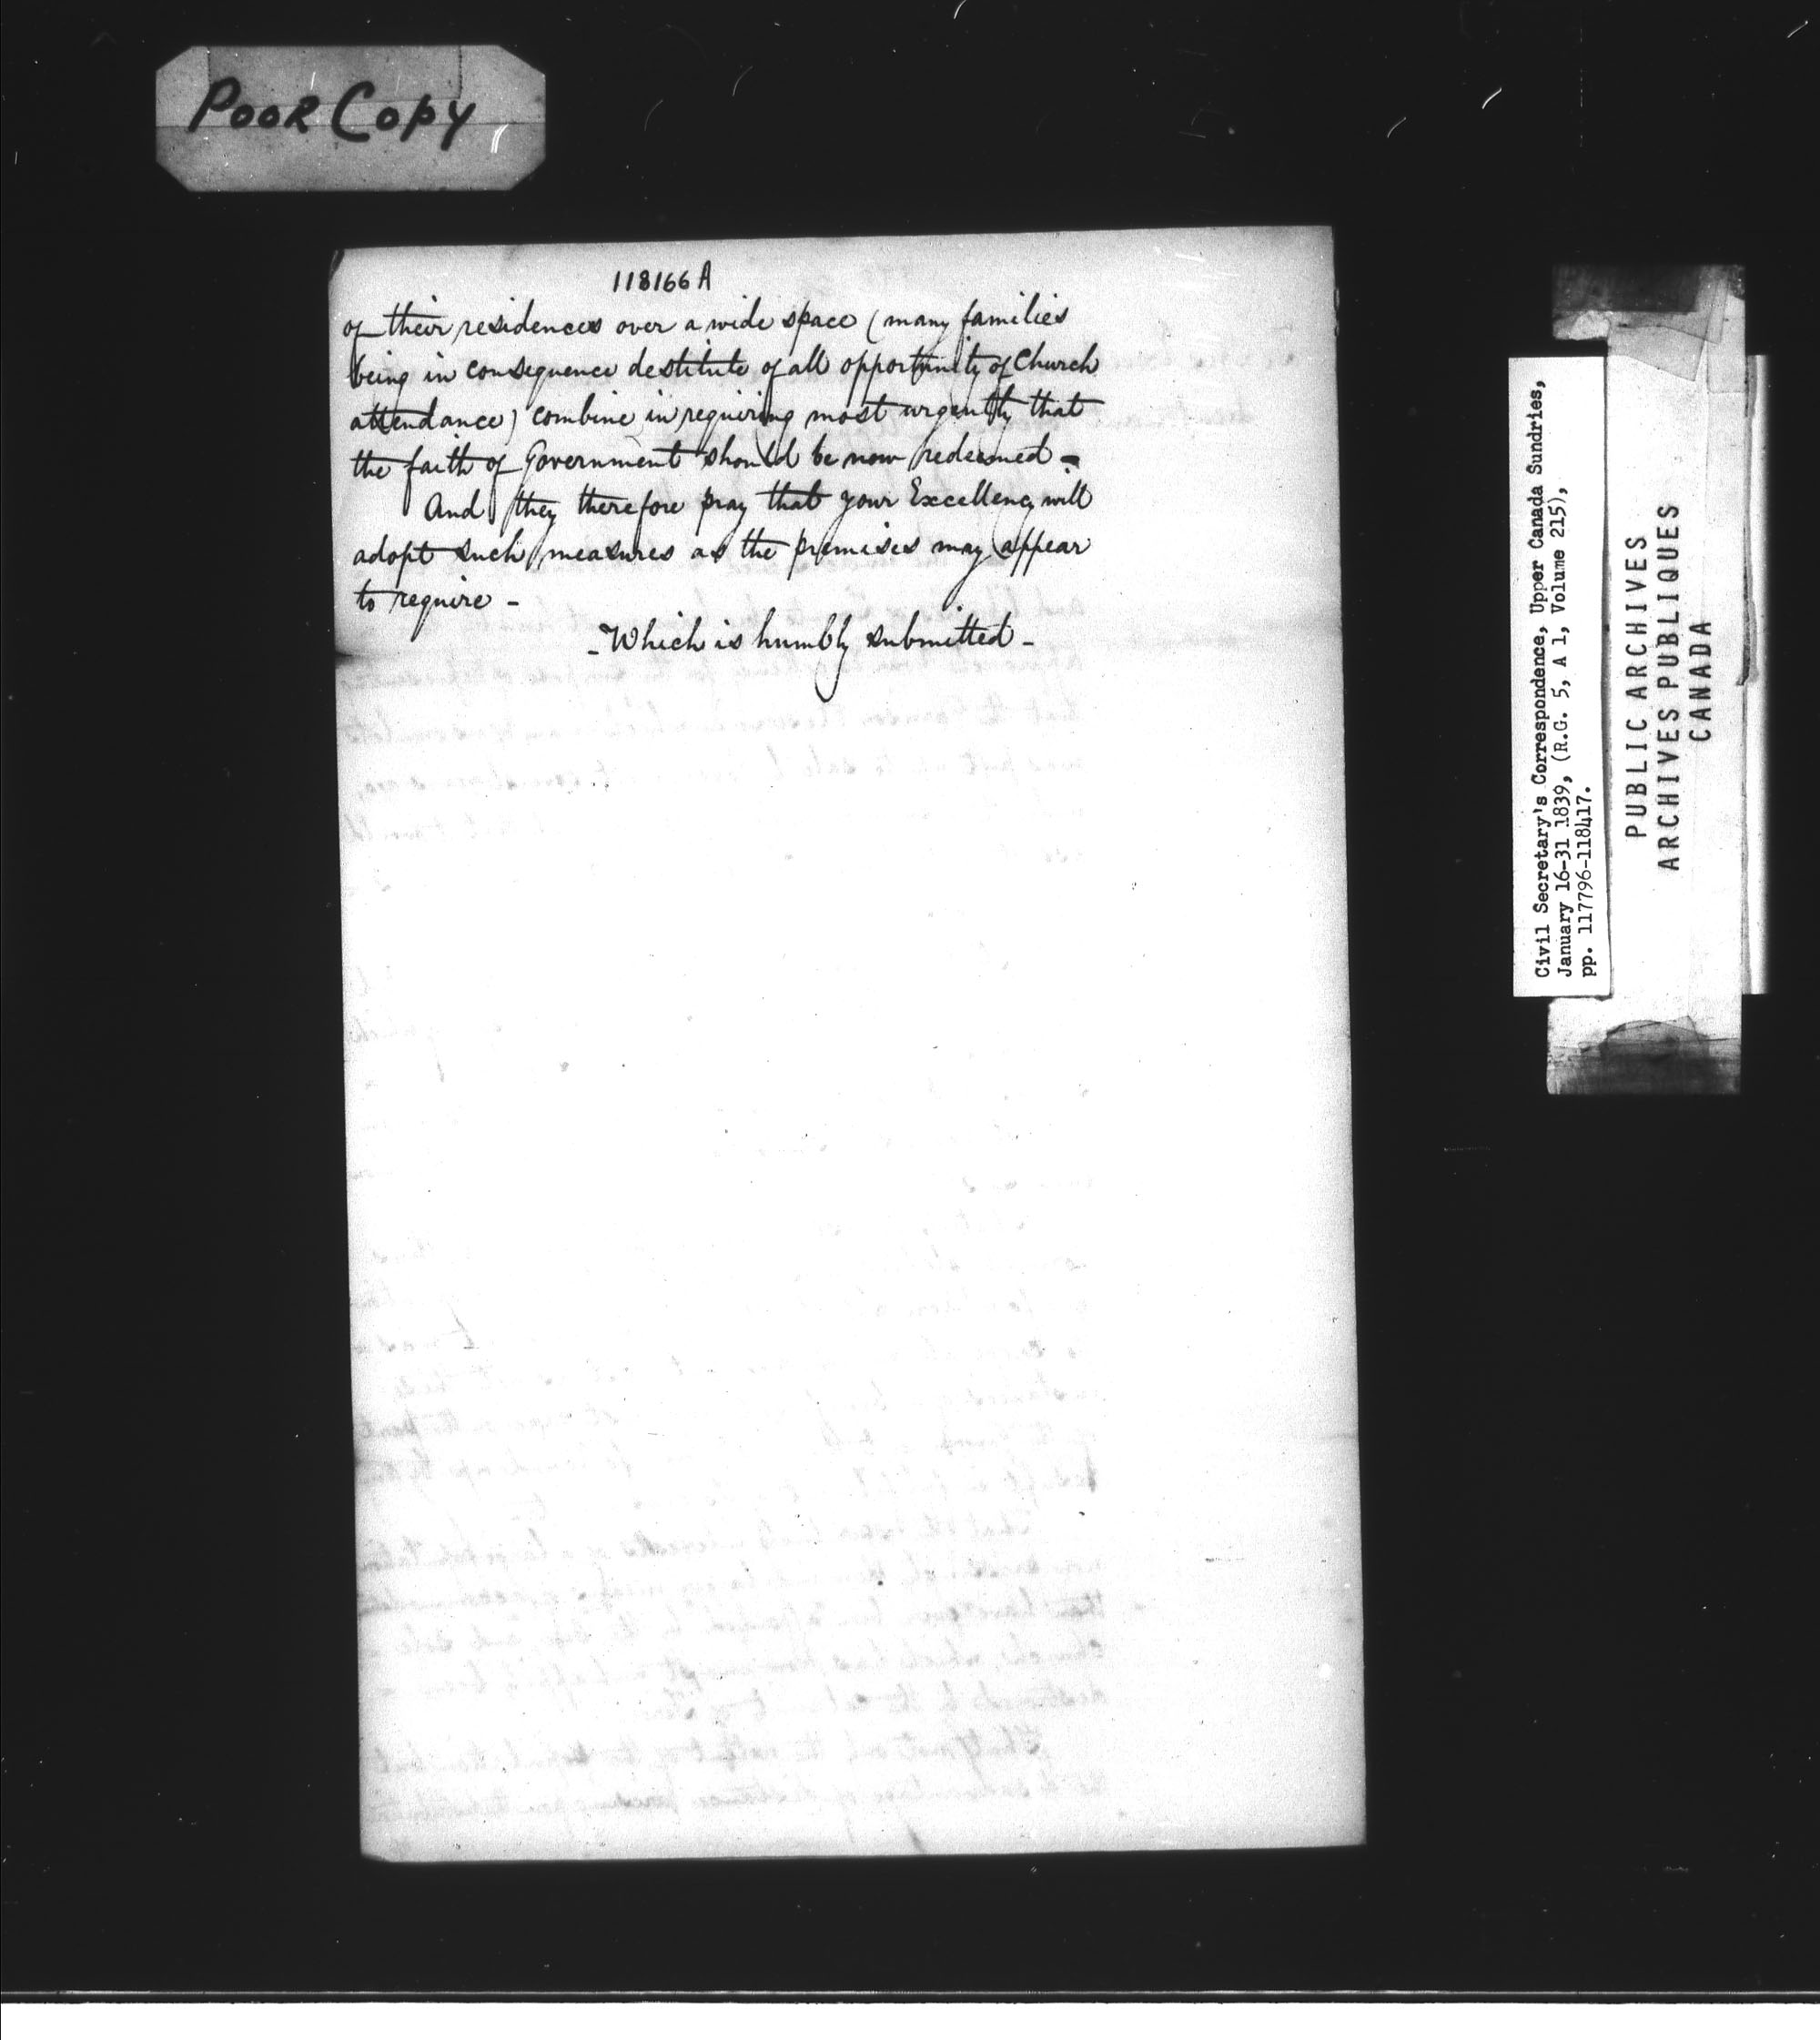 Poor Copy
118166 A
of their residences over a wide space (many families
being in consequence destitute of all opportunity of Church
attendance) combine in requiring most urgently that
the faith of Government should be now redeemed -
And they therefore pray that your Excellency will
adopt such measures as the premises may appear
to require -
- Which is humbly submitted -
Civil Secretary's Correspondence, Upper Canada Sundries,
January 16-31 1839, (R.G. 5, A 1, Volume 215),
pp. 117796-118417.
PUBLIC ARCHIVES
ARCHIVES PUBLIQUES
CANADA